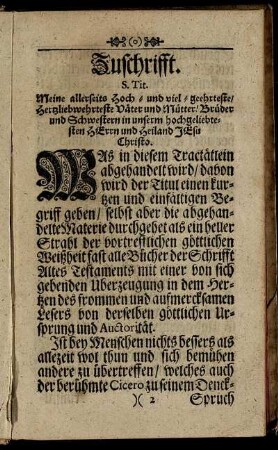 Zuschrifft.
S. Tit.
Meine allerseits Hoch- und viel-geehrteste/
Hertzliebwehrteste Väter und Mütter/ Brüder
und Schwestern in unserm hochgeliebte-
sten HErrn und Heiland JEsu
Christo.
WAs in diesem Tractätlein
abgehandelt wird/ davon
wird der Titul einen kur-
tzen und einfältigen Be-
griff geben/ selbst aber die abgehan-
delte Materie durchgehet als ein heller
Strahl der vortrefflichen göttlichen
Weißheit fast alle Bücher der Schrifft
Altes Testaments mit einer von sich
gebenden Uberzeugung in dem Her-
tzen des frommen und aufmercksamen
Lesers von derselben göttlichen Ur-
sprung und Auctorität.
Ist bey Menschen nichts bessers als
allezeit wol thun und sich bemühen
andere zu übertreffen/ welches auch
der berühmte Cicero zu seinem Denck-
)( 2 Spruch